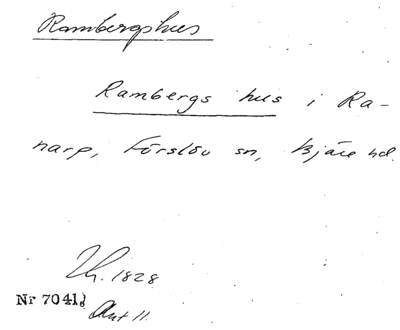 Rambergshus
Rambergs hus i Ra-
narp, Förslöv sn, Bjäre hd.
Th. 1828
Nr 7041